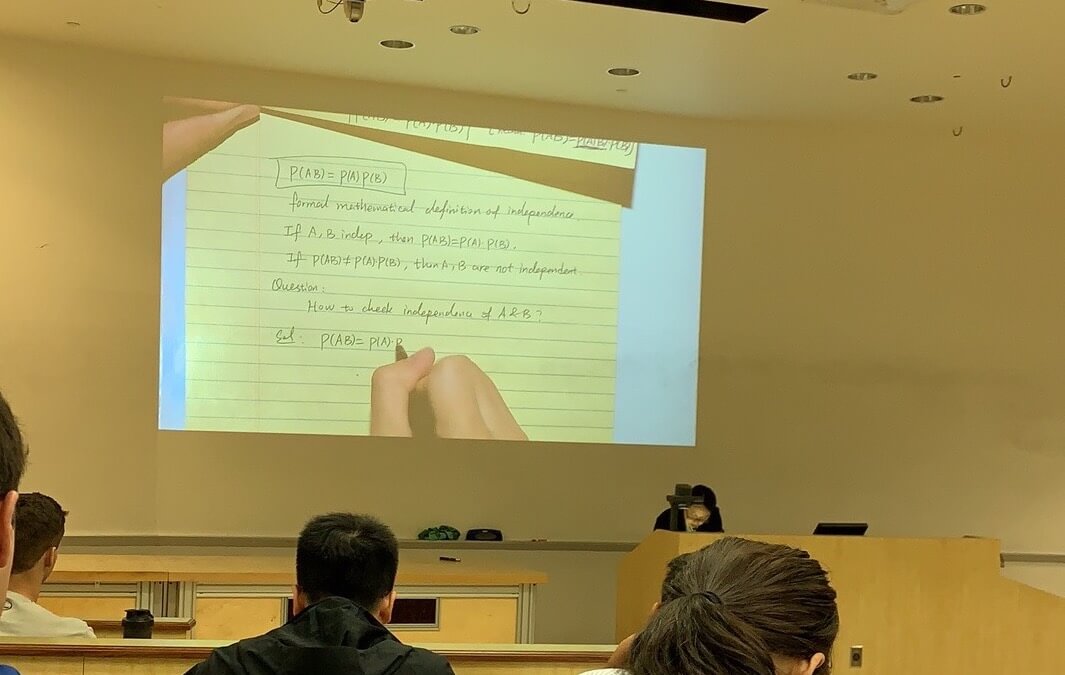 P(A)·P(B) P(AB)=P(A|B)P(B)
P(AB) = P(A) P(B)
formal mathematical definition of independence.
If A, B indep, then P(AB)=P(A)·P(B).
If P(AB)≠P(A)·P(B), then A, B are not independent.
Question:
How to check independence of A & B?
Sol: P(AB)= P(A)·P